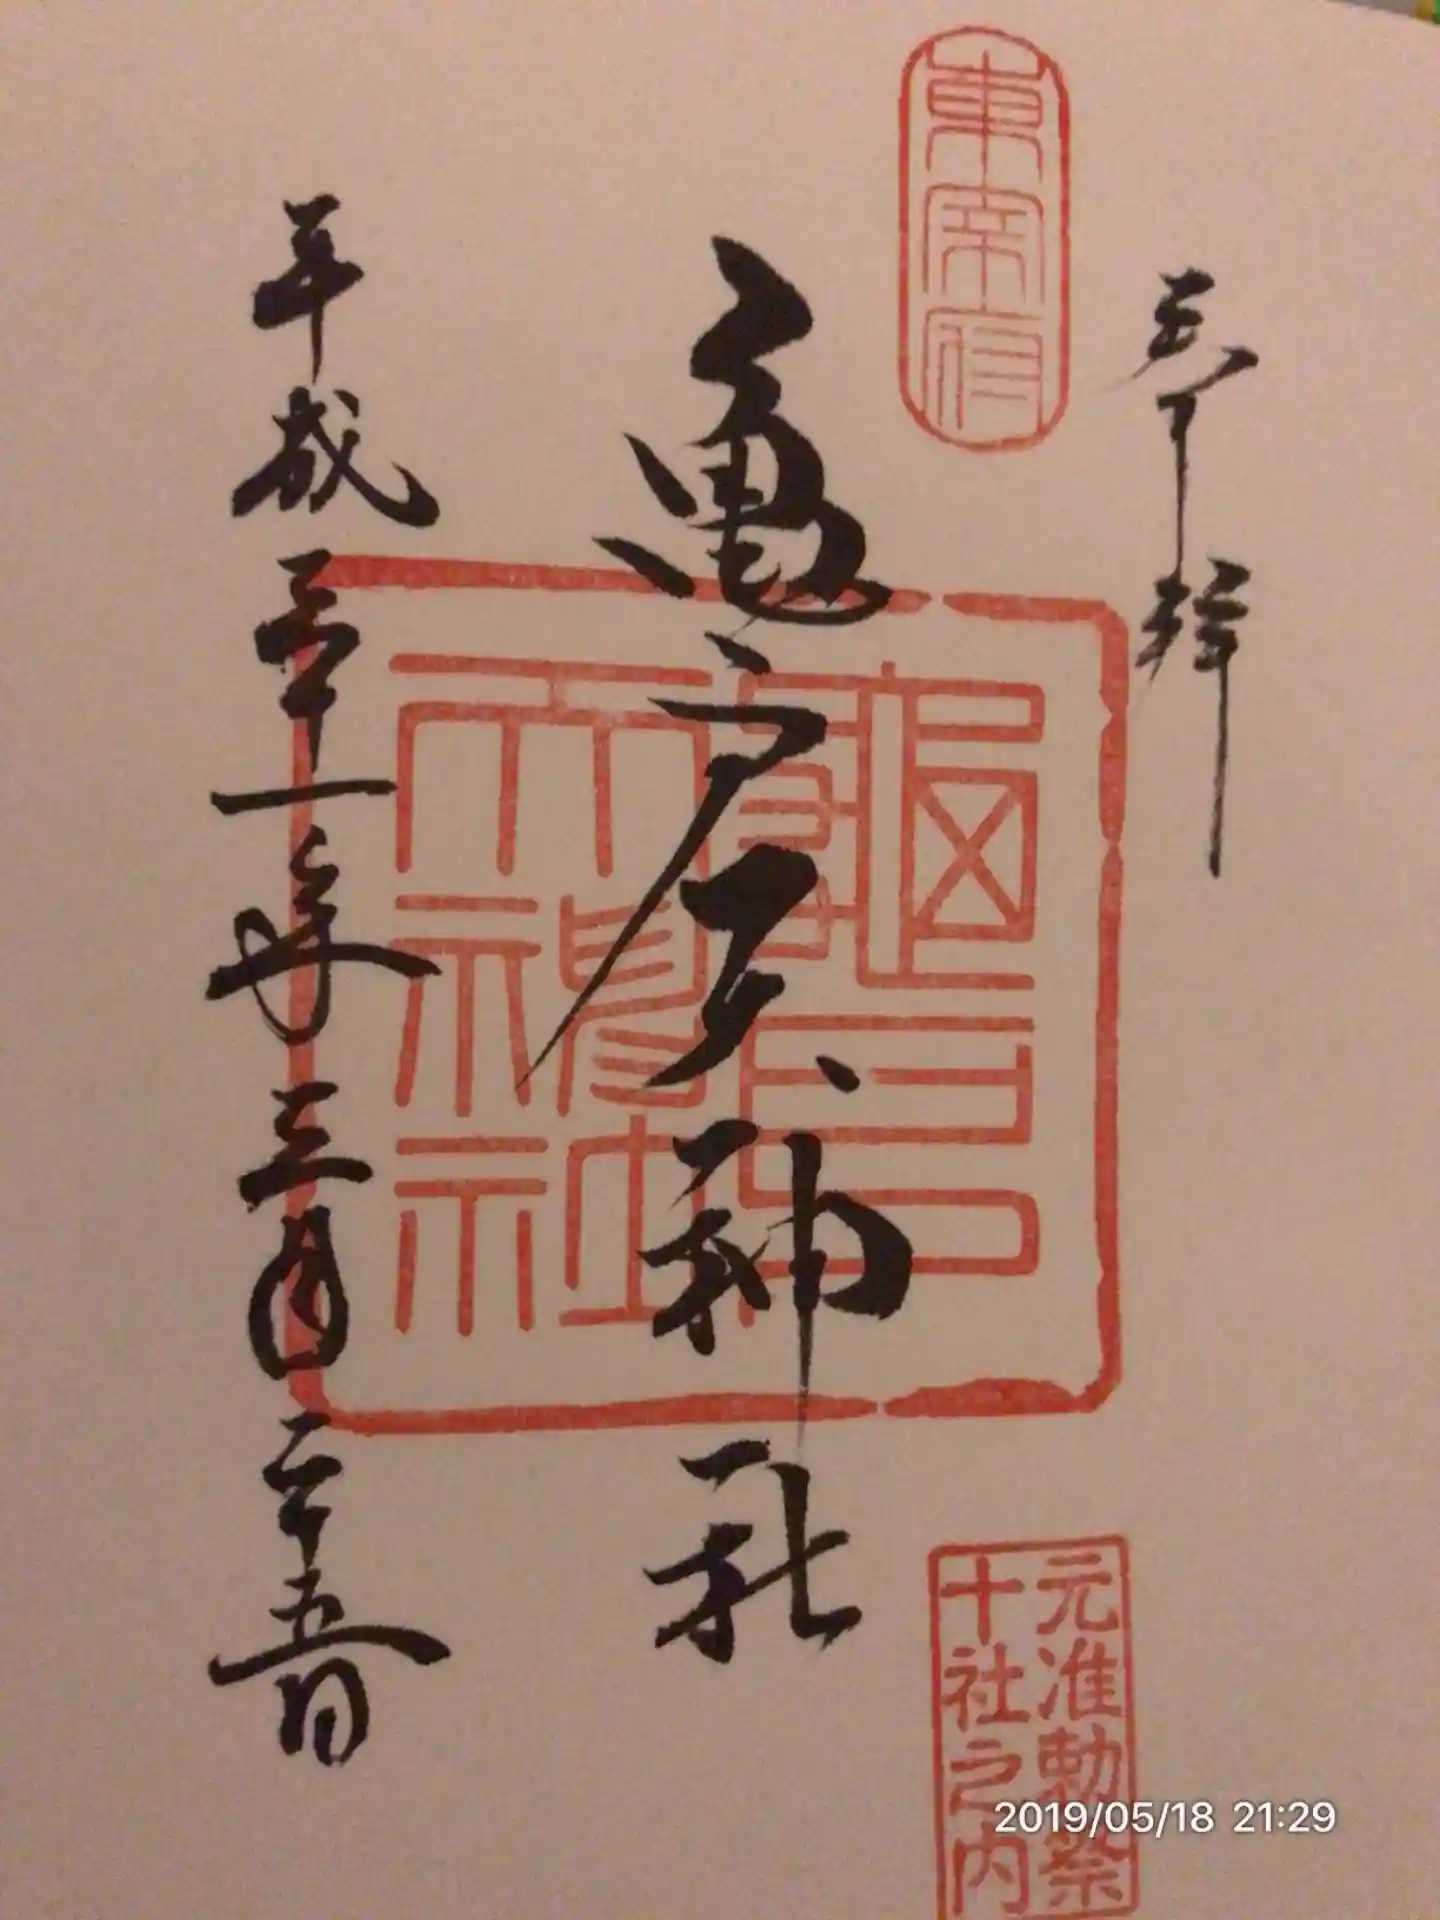 奉拝
東宰府
亀戸天神社
亀戸天神社
平成三十一年三月二十五日
元准勅祭
十社之内
2019/05/18 21:29